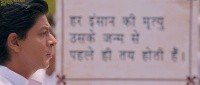 हर इंसान की मृत्यु
उसके जन्म से
पहले ही तय होती हैं।